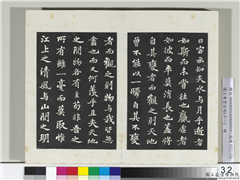 曰客亦知夫水與月乎逝者
如斯而未嘗往也贏虛者
如彼而卒莫消長也蓋將
自其變者而觀之則天地
曾不能以一瞬自其不變
者而觀之則物與我皆無
盡也而又何羨乎且夫天地
之間物各有主苟非吾之
所有雖一毫而莫取惟
江上之清風與山間之明
32